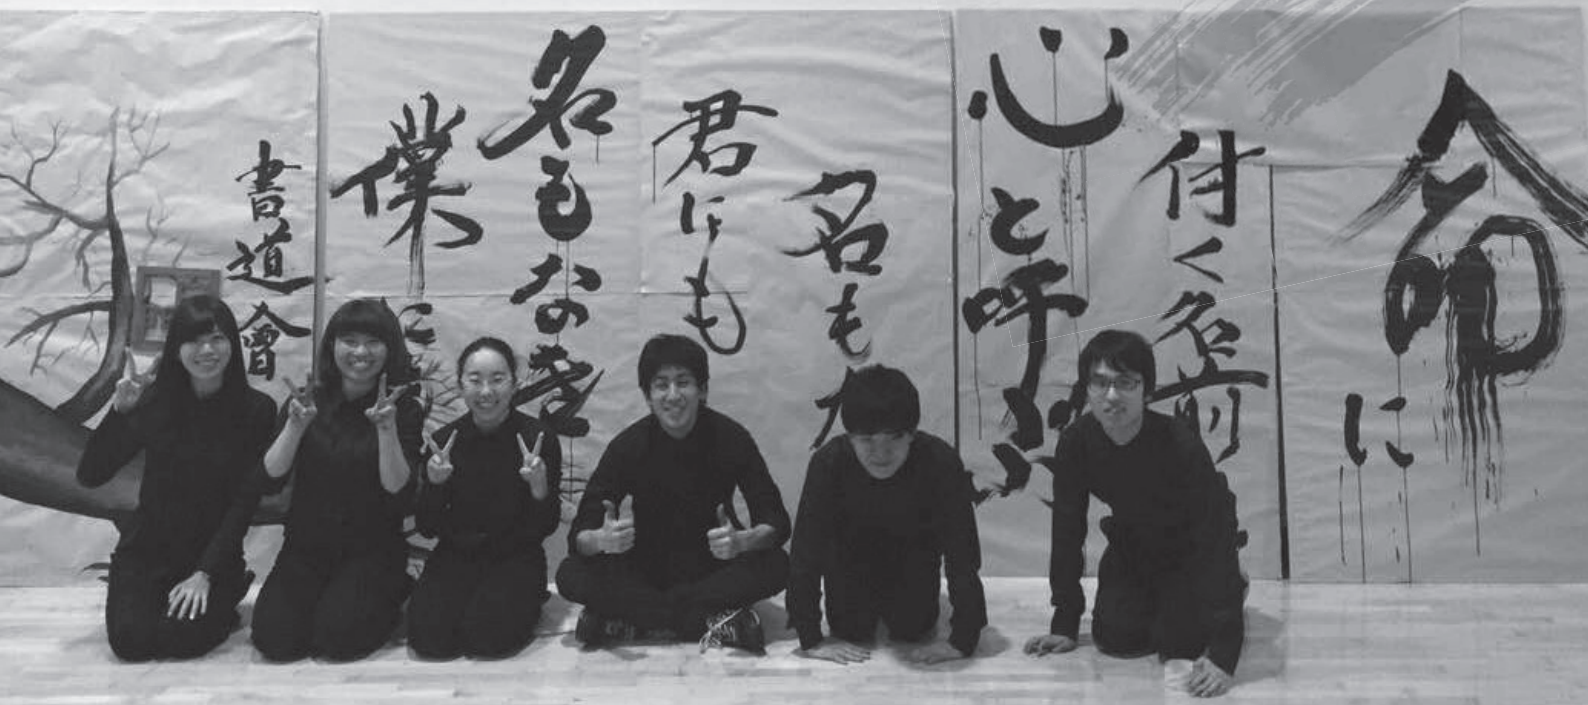 命に
付く名前
心と呼ぶ
名もな
君にも
名もなき
僕に
書道會